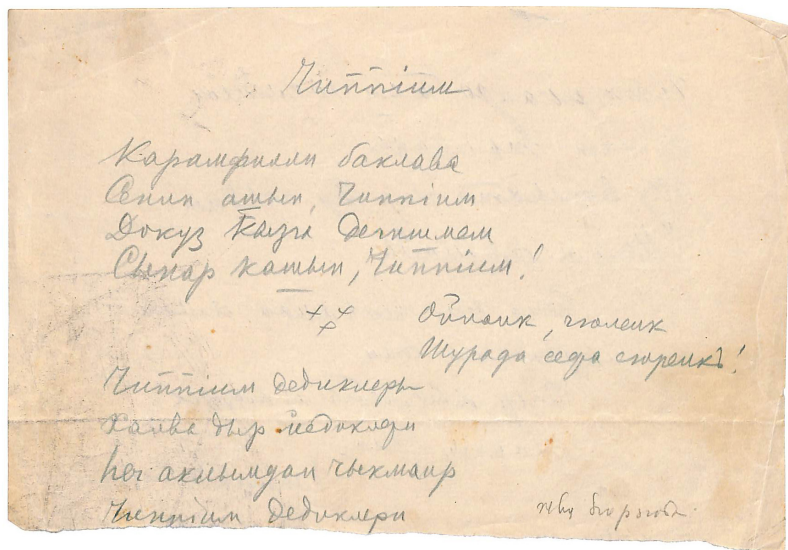 Чиппіим
Карамфилли баклава
Сенин ашын, Чиппіим
Докуз казы дегишмем
Сынар кашын, Чиппіим!
Ойноик, гюлеик
Шурада сефа сюреикъ!
Чиппіим дедиклеры
Халва дыр іедиклери
һеч аклымдан чыкмаир
Чиппіим дедиклери